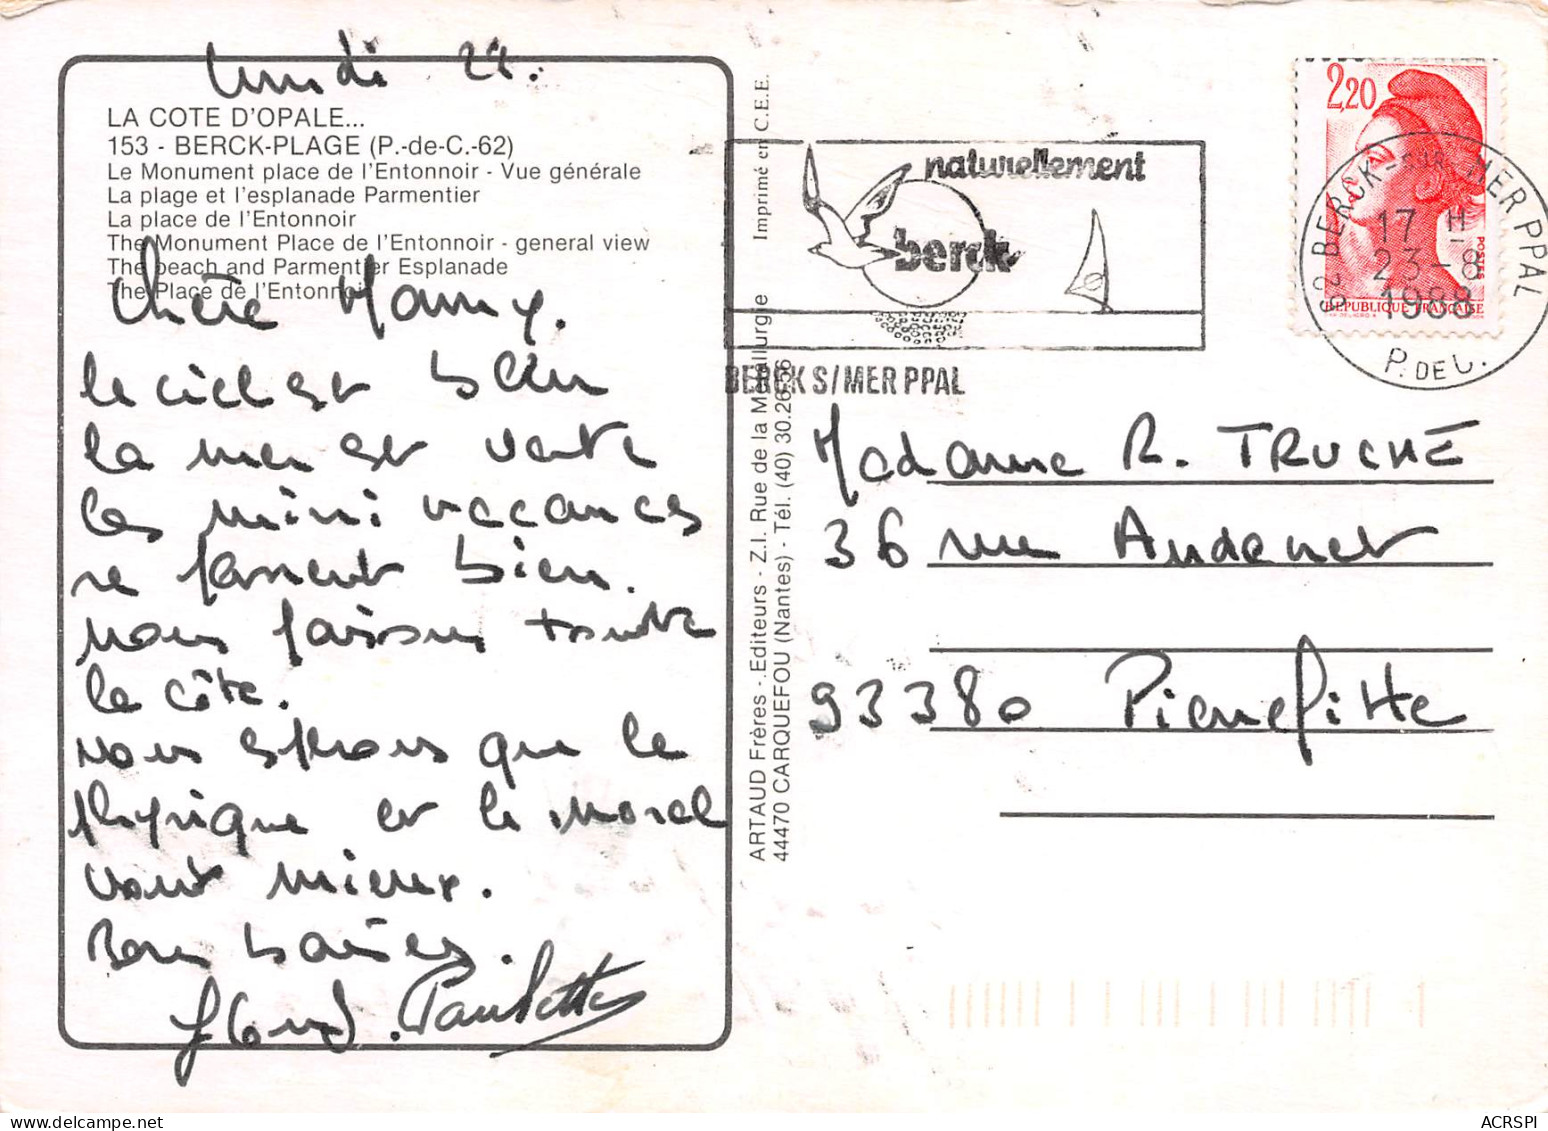 lundi 22.
LA COTE D'OPALE...
153 - BERCK-PLAGE (P.-de-C.-62)
Le Monument place de l'Entonnoir - Vue générale
La plage et l'esplanade Parmentier
La place de l'Entonnoir
The Monument Place de l'Entonnoir - general view
The beach and Parmentier Esplanade
The Place de l'Entonnoir
Chère Mamy.
le ciel est bleu
la mer est verte
les mini vacances
se passent bien.
nous faisons toute
la côte.
nous espérons que le
physique et le moral
vont mieux.
Bons baisers.
Paulette
Imprimé en C.E.E.
ARTAUD Frères - Editeurs - Z.I. Rue de la Métallurgie
44470 CARQUEFOU (Nantes) - Tél. (40) 30.26.56
naturellement
berck
BERCK S/MER PPAL
2,20
POSTES
REPUBLIQUE FRANÇAISE
62 BERCK-SUR-MER PPAL
17 H
23-8
1988
P. DE C.
Madame R. TRUCHE
36 rue Audanet
93380 Pierrefitte
ACRSPI